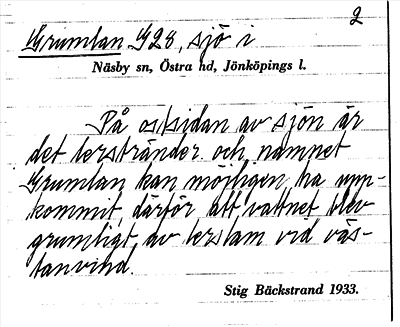 2
Grumlan G28, sjö i
Näsby sn, Östra hd, Jönköpings l.
På ostsidan av sjön är
det lerstränder och namnet
Grumlan kan möjligen ha upp-
kommit därför att vattnet blev
grumligt av lerslam vid väs-
tanvind.
Stig Bäckstrand 1933.